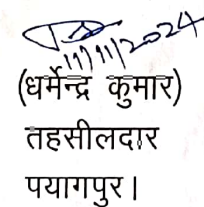 11/11/2024
(धर्मेन्द्र कुमार)
तहसीलदार
पयागपुर।